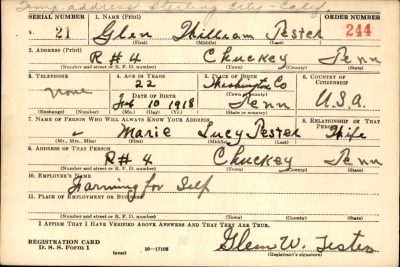 Temp address Sterling City - Calif.
SERIAL NUMBER 1. NAME (Print) ORDER NUMBER
21 Glen William Tester 244
(First) (Middle) (Last)
2. ADDRESS (Print)
R#4 Chuckey Tenn
(Number and street or R. F. D. number) (Town) (County) (State)
3. TELEPHONE 4. AGE IN YEARS 5. PLACE OF BIRTH 6. COUNTRY OF CITIZENSHIP
none 22 Washington Co U.S.A.
DATE OF BIRTH (Town or county)
Feb 10 1918 Tenn
(Exchange) (Number) (Mo.) (Day) (Yr.) (State or country)
7. NAME OF PERSON WHO WILL ALWAYS KNOW YOUR ADDRESS 8. RELATIONSHIP OF THAT PERSON
Marie Lucy Tester Wife
(Mr., Mrs., Miss) (First) (Middle) (Last)
9. ADDRESS OF THAT PERSON
R#4 Chuckey Tenn
(Number and street or R. F. D. number) (Town) (County) (State)
10. EMPLOYER'S NAME
Farming for Self
11. PLACE OF EMPLOYMENT OR BUSINESS
(Number and street or R. F. D. number) (Town) (County) (State)
I AFFIRM THAT I HAVE VERIFIED ABOVE ANSWERS AND THAT THEY ARE TRUE.
REGISTRATION CARD
D. S. S. Form 1 (over) 16—17105 Glenn W. Tester
(Registrant's signature)